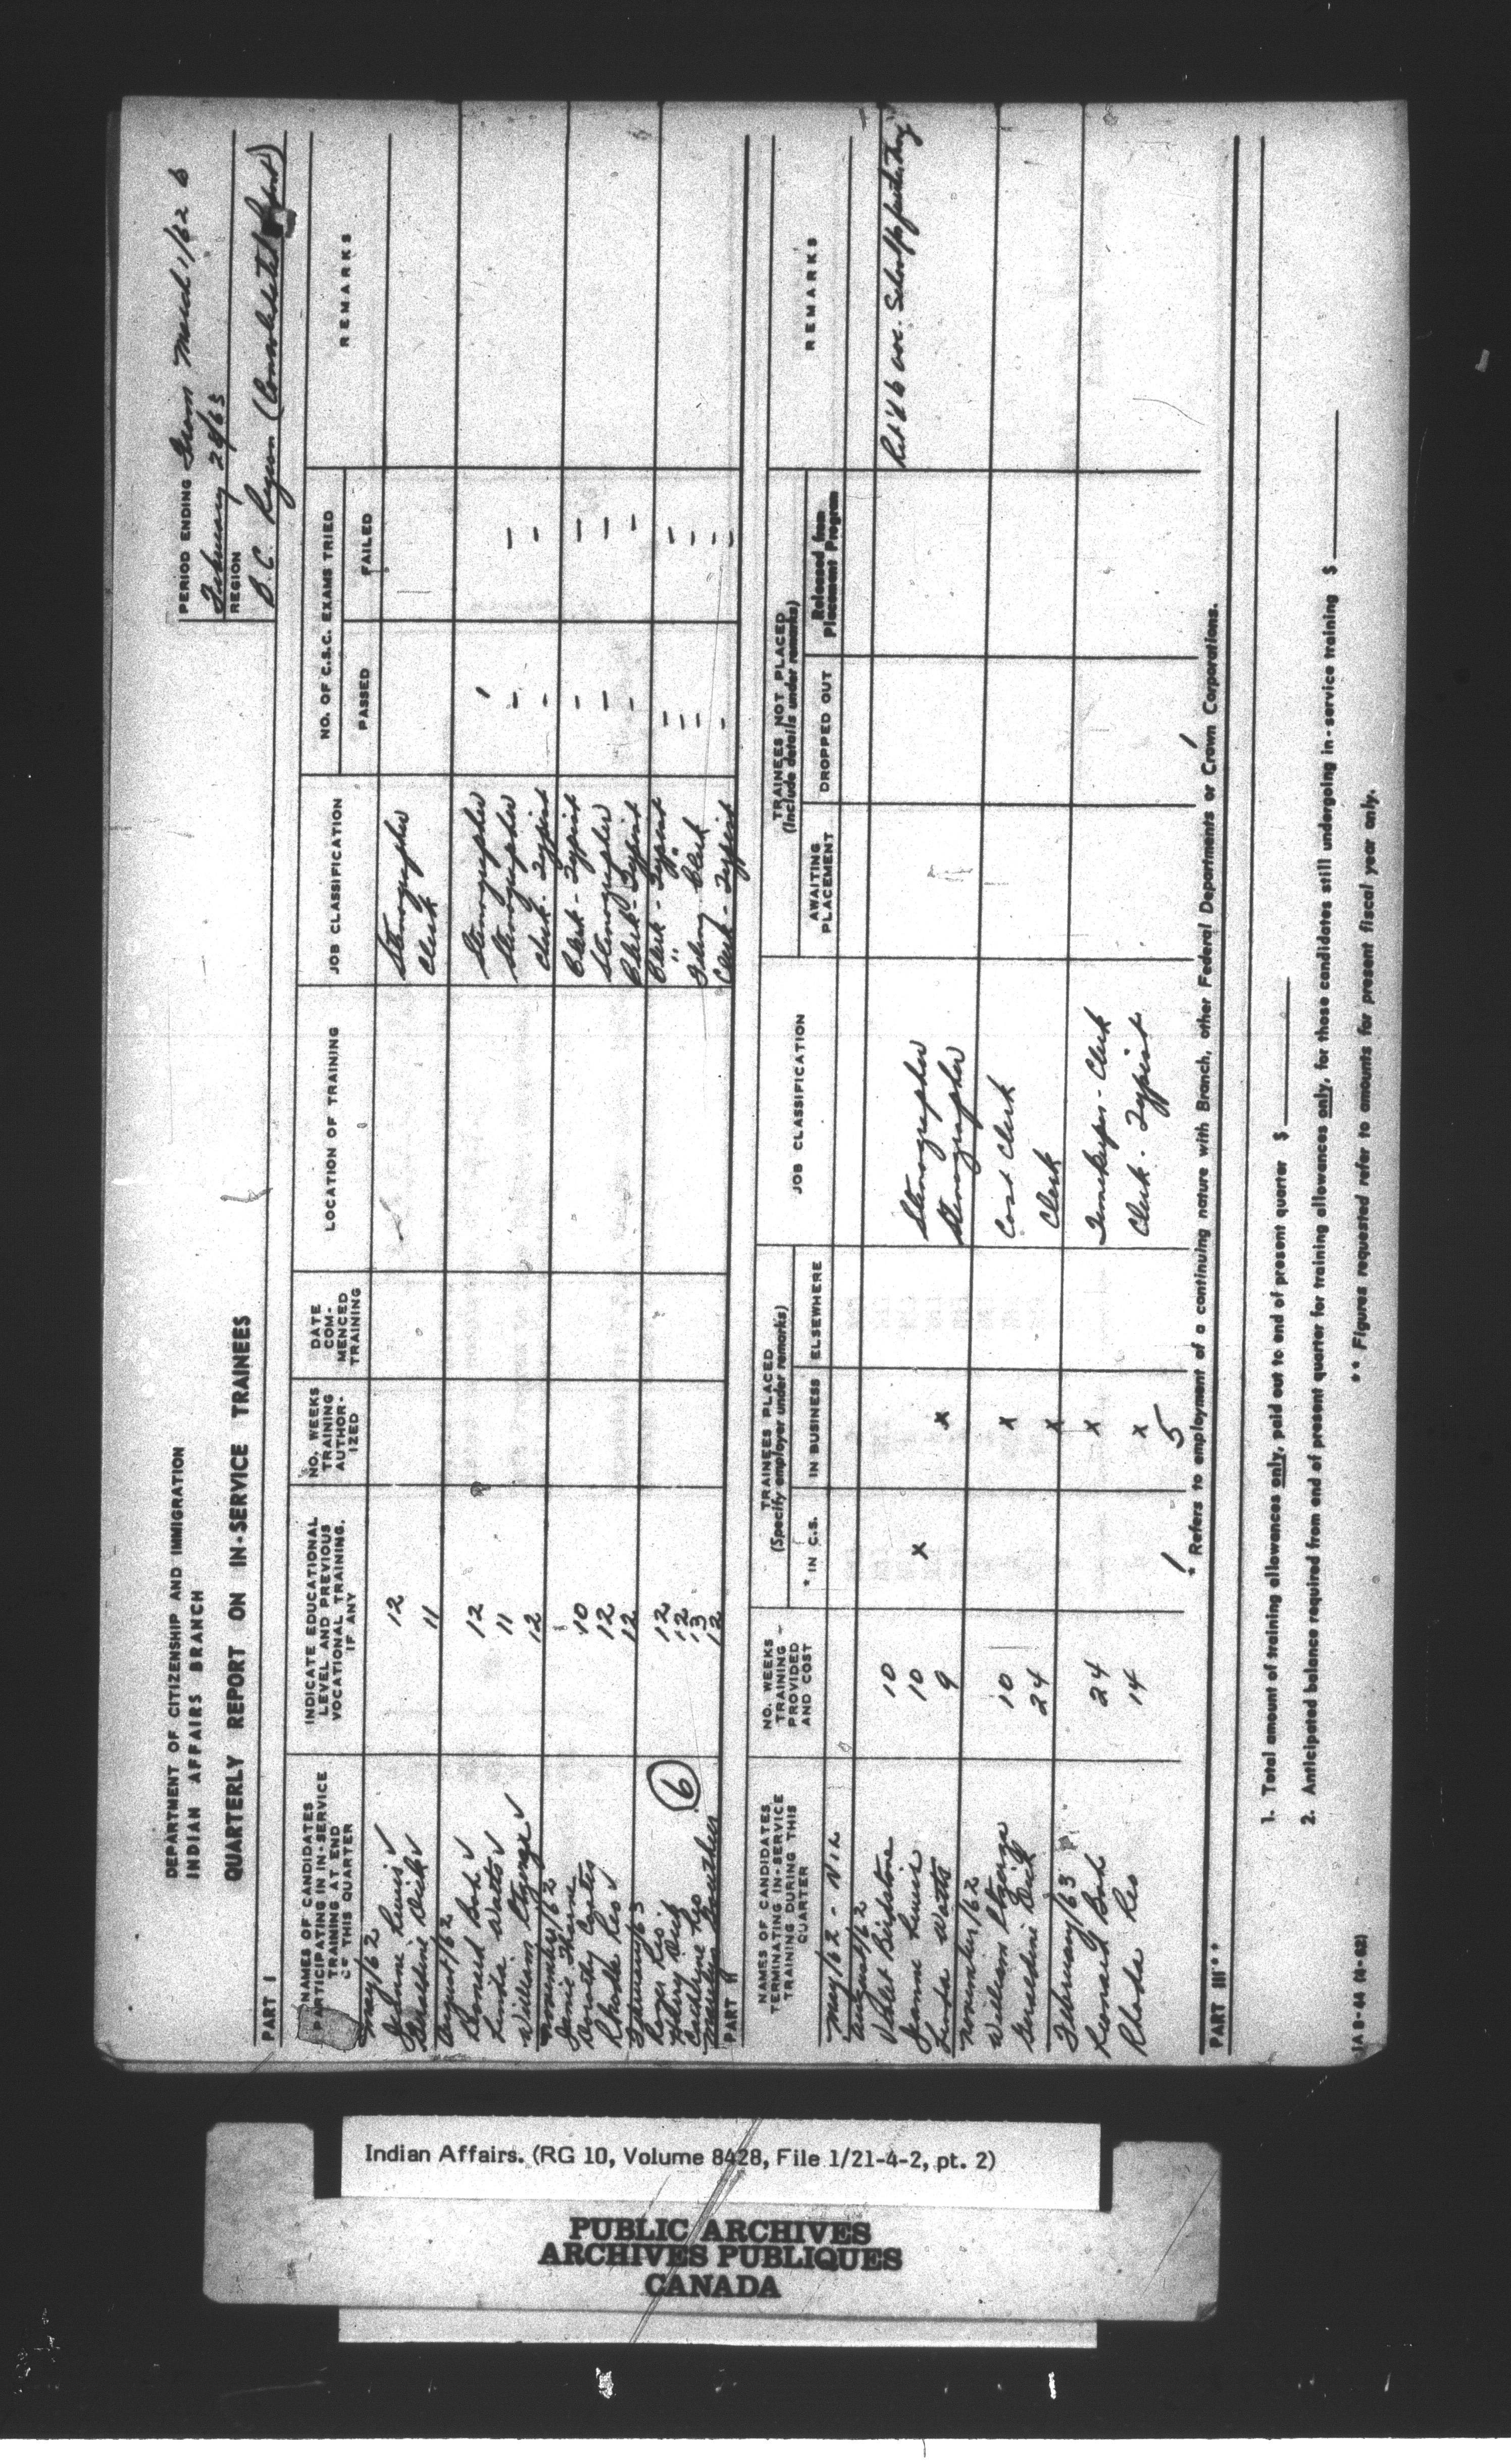 DEPARTMENT OF CITIZENSHIP AND IMMIGRATION
INDIAN AFFAIRS BRANCH
QUARTERLY REPORT ON IN-SERVICE TRAINEES
PERIOD ENDING From March 1/62 to
February 28/63
REGION
B.C. Region (Consolidated Report)
PART I
NAMES OF CANDIDATES PARTICIPATING IN IN-SERVICE TRAINING AT END OF THIS QUARTER
INDICATE EDUCATIONAL LEVEL AND PREVIOUS VOCATIONAL TRAINING, IF ANY
NO. WEEKS TRAINING AUTHORIZED
DATE COMMENCED TRAINING
LOCATION OF TRAINING
JOB CLASSIFICATION
NO. OF C.S.C. EXAMS TRIED
PASSED
FAILED
REMARKS
May/62
Jeanne Lewis ✓ 12 Stenographer
Geraldine Dick ✓ 11 Clerk
August/62
Leonard Bob ✓ 12 Stenographer
Linda Watts ✓ 11 Stenographer - -
William George ✓ 12 Clerk-Typist - -
November/62
Janie Thorne 10 Clerk-Typist - -
Dorothy 12 Stenographer - -
Rhoda Leo ✓ 12 Clerk-Typist - -
February/63
Roger Leo 12 Clerk-Typist - -
Dick 12 " " - -
Leo 13 Filing Clerk - -
12 Clerk-Typist - -
6
PART II
NAMES OF CANDIDATES TERMINATING IN-SERVICE TRAINING DURING THIS QUARTER
NO. WEEKS TRAINING PROVIDED AND COST
TRAINEES PLACED
(Specify employer under remarks)
* IN C.S.
IN BUSINESS
ELSEWHERE
JOB CLASSIFICATION
TRAINEES NOT PLACED
(Include details under remarks)
AWAITING PLACEMENT
DROPPED OUT
Released from Placement Program
REMARKS
May/62 - Nil
August/62
Violet Birdstone 10 Ret'd to voc. School for further Trng
Jeanne Lewis 10 x Stenographer
Linda Watts 9 x Stenographer
November/62
William George 10 x Cost Clerk
Geraldine Dick 24 x Clerk
February/63
Leonard Bob 24 x Timekeeper-Clerk
Rhoda Leo 14 x Clerk-Typist
1 5 1
* Refers to employment of a continuing nature with Branch, other Federal Departments or Crown Corporations.
PART III**
1. Total amount of training allowances only, paid out to end of present quarter $
2. Anticipated balance required from end of present quarter for training allowances only, for those candidates still undergoing in-service training $
** Figures requested refer to amounts for present fiscal year only.
IA 8-44 (4-62)
Indian Affairs. (RG 10, Volume 8428, File 1/21-4-2, pt. 2)
PUBLIC ARCHIVES
ARCHIVES PUBLIQUES
CANADA